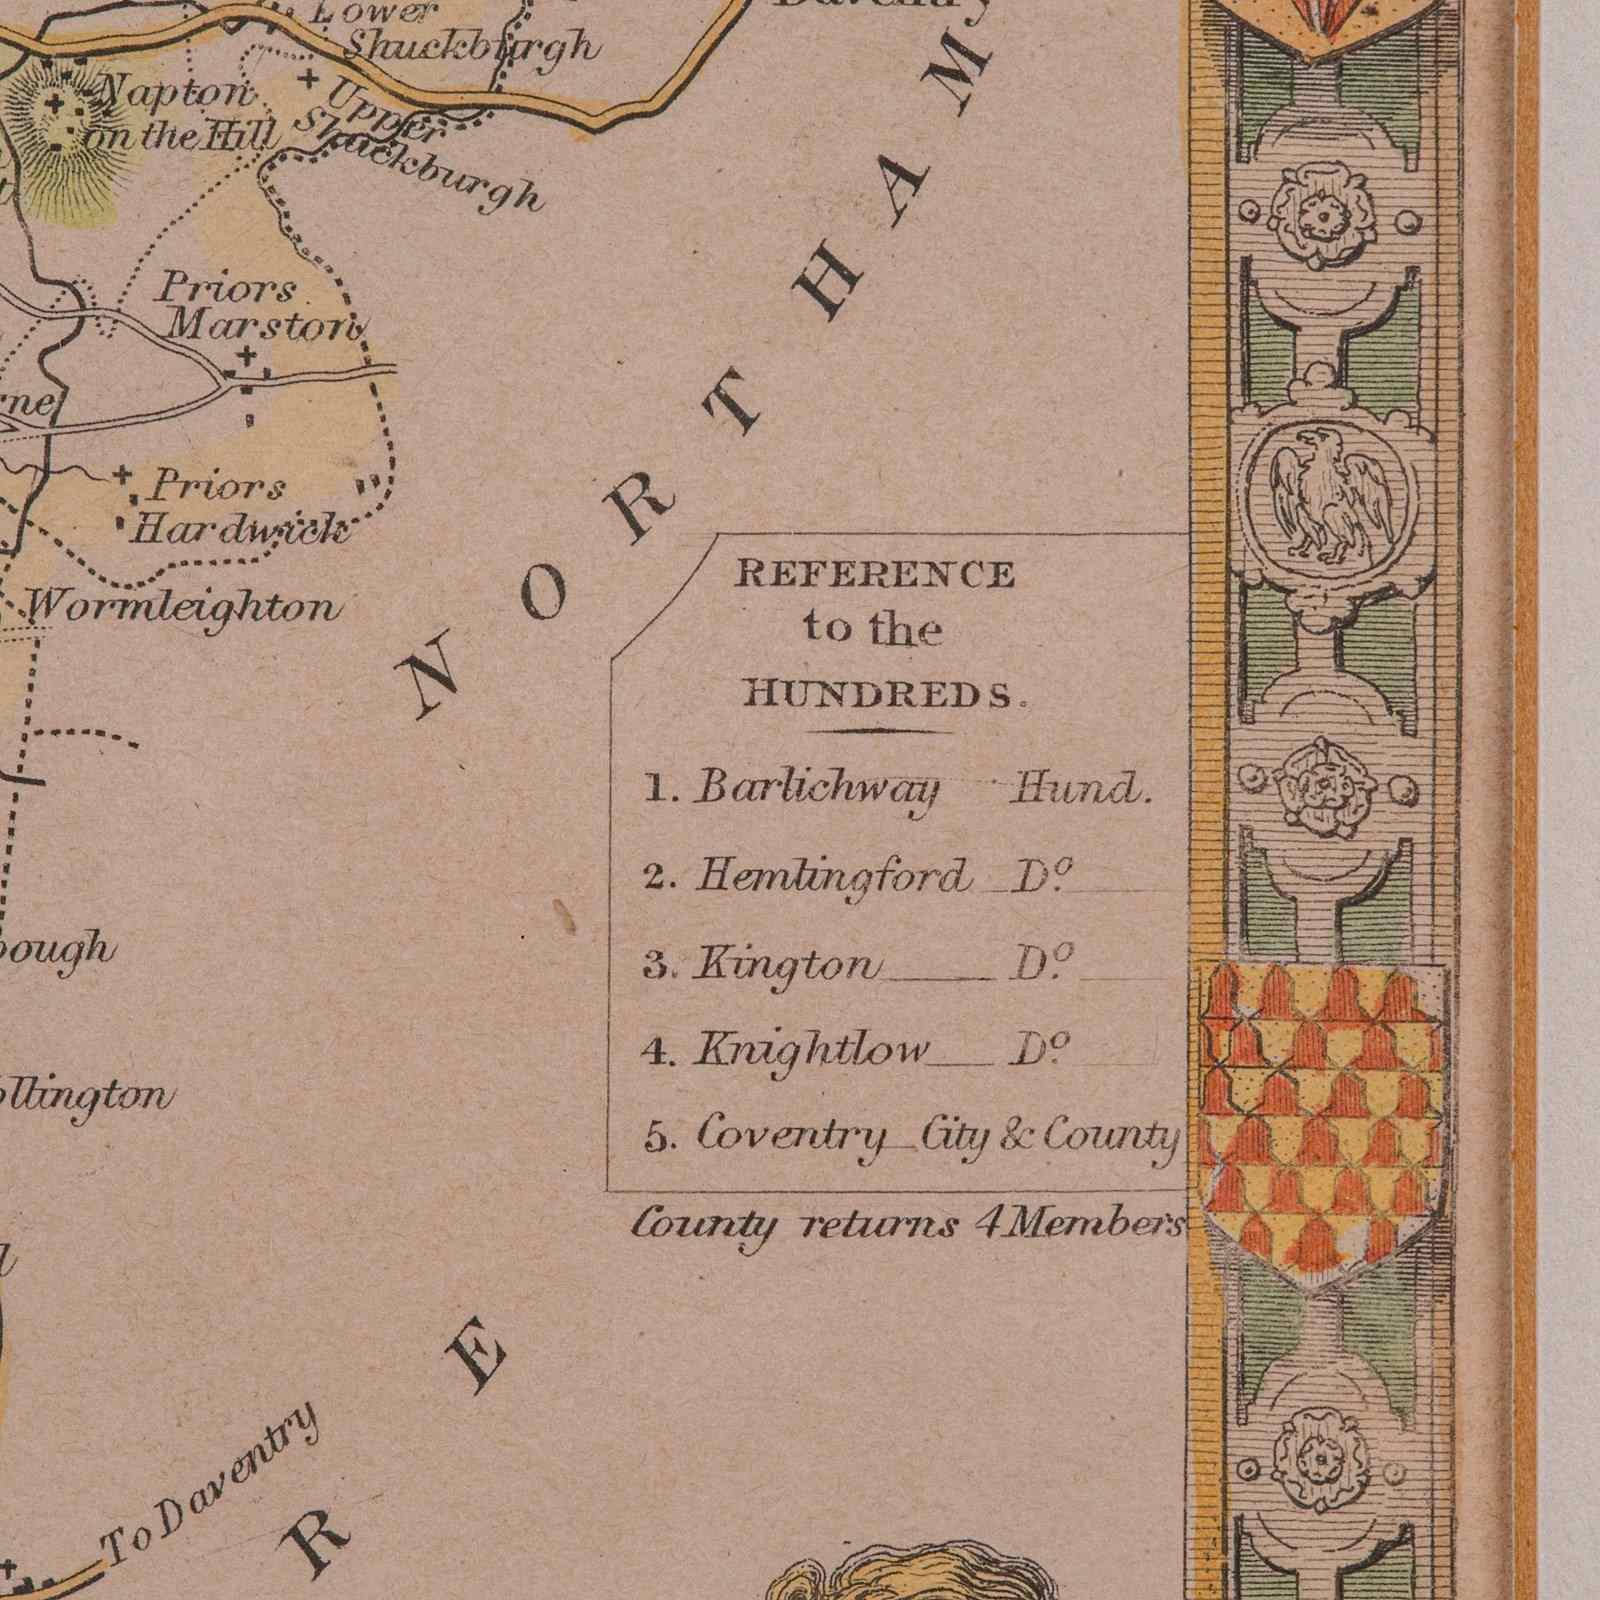 Daventry
Lower
Shuckburgh
Napton
on the Hill
Upper
Shuckburgh
Priors
Marston
Priors
Hardwick
Wormleighton
NORTHAM
REFERENCE
to the
HUNDREDS.
1. Barlichway Hund.
2. Hemlingford Dº.
3. Kington Dº.
4. Knightlow Dº.
5. Coventry City & County
County returns 4 Members
E
R
To Daventry